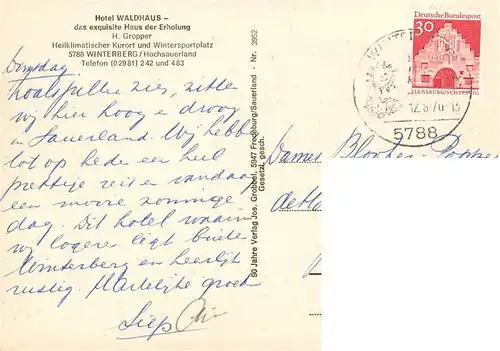 Hotel WALDHAUS –
das exquisite Haus der Erholung
H. Gropper
Heilklimatischer Kurort und Wintersportplatz
5788 WINTERBERG / Hochsauerland
Telefon (02981) 242 und 483
Dinsdag
zoals jullie zien, zitten
wij hier hoog en droog
in Sauerland. Wij hebben
tot op heden een heel
prettige reis en vandaag
een mooie zonnige
dag. Dit hotel waarin
wij logeren ligt buiten
Winterberg en heerlijk
rustig. Hartelijke groet
Jiep
90 Jahre Verlag Jos. Grobbel, 5947 Fredeburg/Sauerland - Nr. 3952
Gesetzl. gesch.
Deutsche Bundespost
30
FLENSBURG/SCHLESWIG
12.8.70-13
5788
Dames